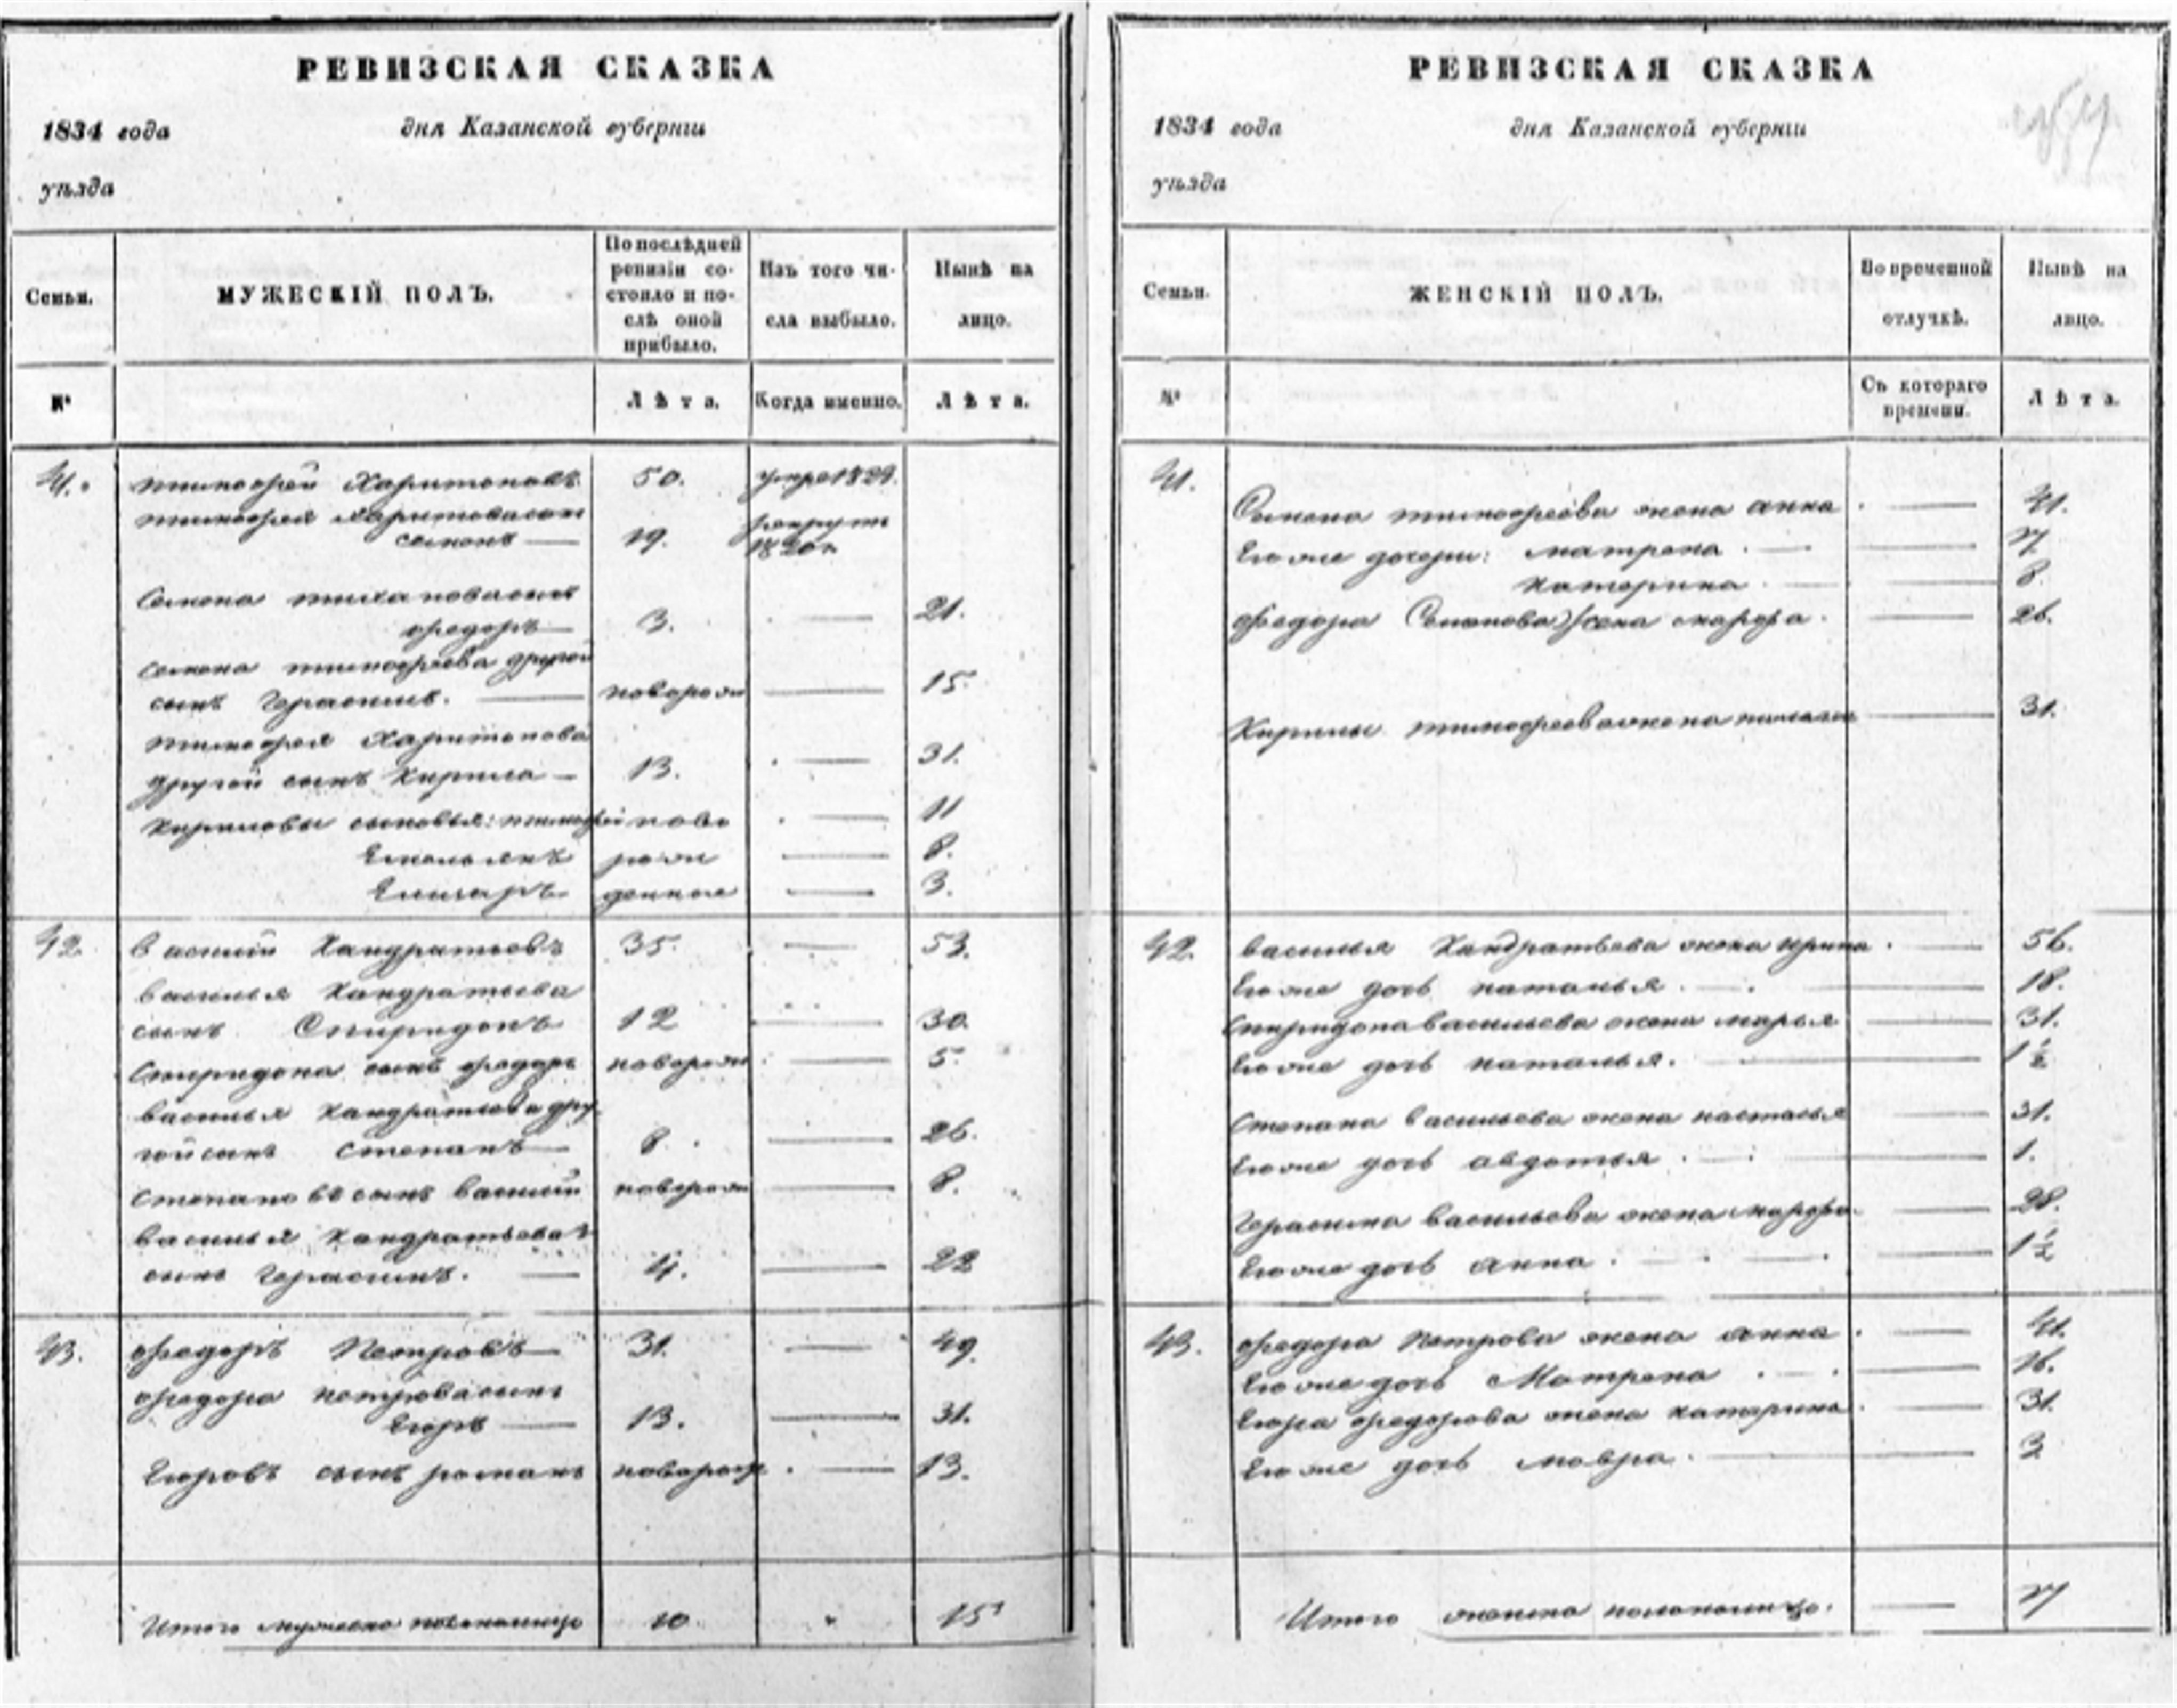 РЕВИЗСКАЯ СКАЗКА
1834 года дня Казанской губернiи
уѣзда
Семьи. МУЖЕСКIЙ ПОЛЪ. По послѣдней ревизiи состояло и послѣ оной прибыло. Изъ того числа выбыло. Нынѣ на лицо.
№ Лѣта. Когда именно. Лѣта.
41. тимофей Харитоновъ 50. умре 1829.
тимофея харитонова сынъ
семенъ — 19. рекрутъ 1820 г.
Семена сынъ
федоръ — 3. — 21.
семена тимофеева другой
сынъ Герасимъ. — новорож — 15.
тимофея Харитонова
другой сынъ Кирила — 13. — 31.
Кириловы сыновья: тимофей ново — 11
Емельянъ рож — 8.
денные — 3.
42. Василий Кандратьевъ 35. — 53.
василья Кандратьева
сынъ Спиридонъ 12 — 30.
Спиридона сынъ федоръ новорож — 5.
василья Кандратьева дру
гой сынъ степанъ — 8. — 26.
степановъ сынъ василий новорож — 8.
василья Кандратьева
сынъ Герасимъ. — 4. — 22
43. федоръ Петровъ — 31. — 49.
федора петрова сынъ
Егоръ — 13. — 31.
Егоровъ сынъ романъ новорож — 13.
Итого мужеска пола налицо 10 " 15
РЕВИЗСКАЯ СКАЗКА
1834 года дня Казанской губернiи
уѣзда
Семьи. ЖЕНСКIЙ ПОЛЪ. Во временной отлучкѣ. Нынѣ на лицо.
№ Съ котораго времени. Лѣта.
41. Семена тимофеева жена анна — 41.
Его же дочери: матрена —
катерина — 8.
федора Семенова жена марфа. — 26.
Кирилы тимофеева жена — 31.
42. василья Кандратьева жена ирина — 56.
Его же дочь наталья. — 18.
спиридона васильева жена марья — 31.
Его же дочь наталья. — 1½
степана васильева жена настасья — 31.
Его же дочь авдотья. — 1.
Герасима васильева жена марфа. — 28.
Его же дочь анна. — 1½
43. федора Петрова жена анна. — 41.
Его же дочь Матрена — 16.
Егора федорова жена катарина. — 31.
Его же дочь мавра. — 3
Итого женска пола налицо. — 17